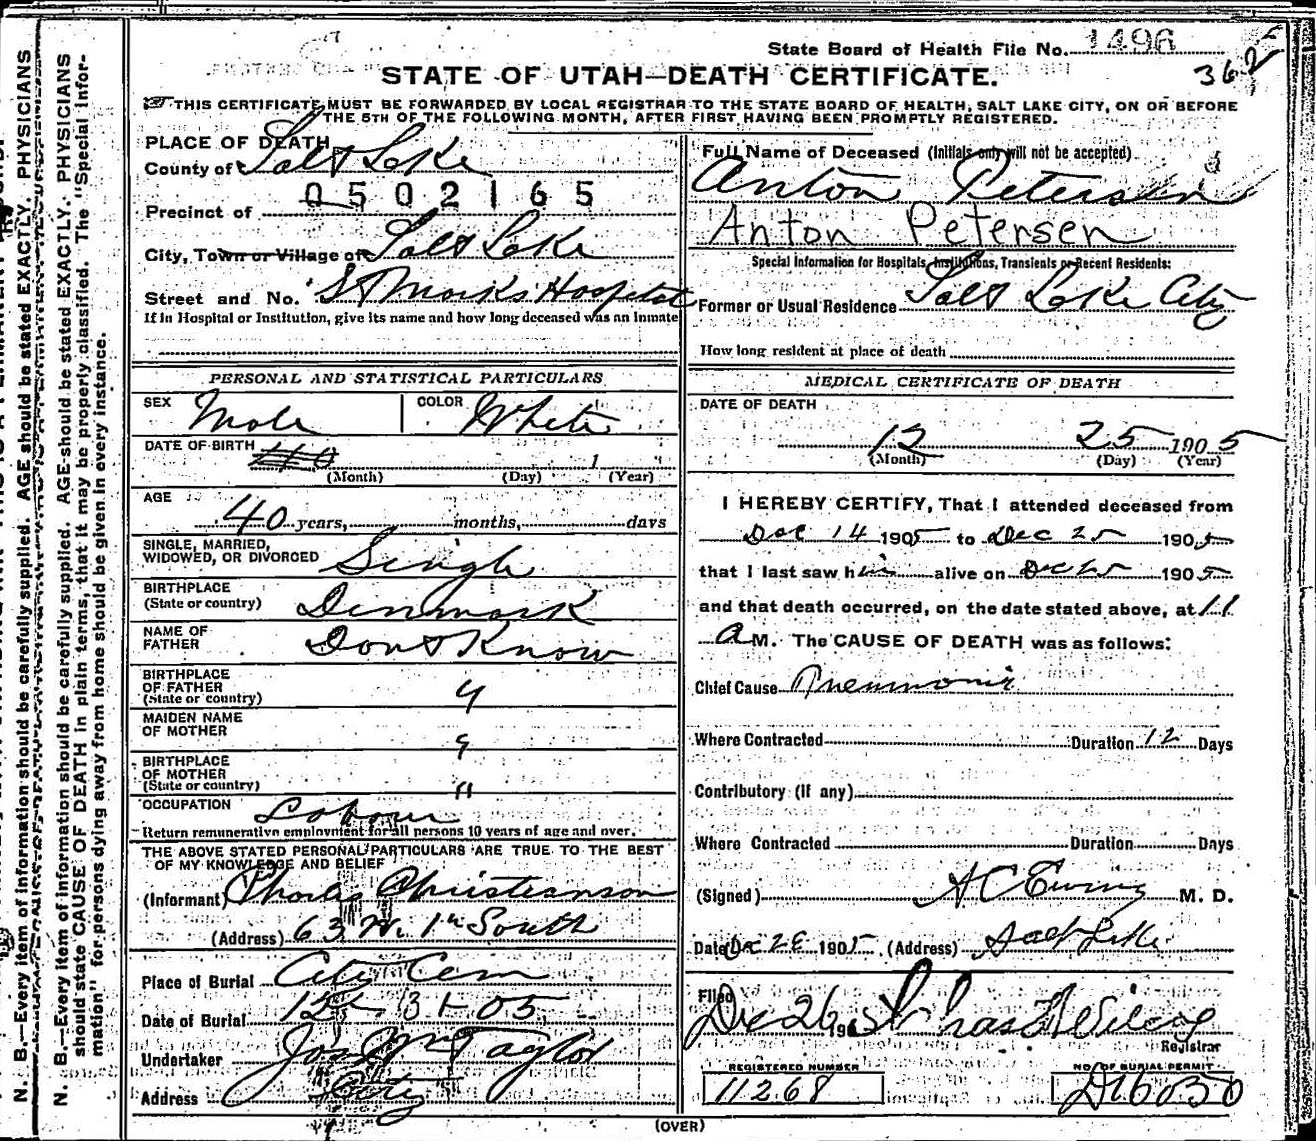 State Board of Health File No. 1496
362
STATE OF UTAH—DEATH CERTIFICATE.
THIS CERTIFICATE MUST BE FORWARDED BY LOCAL REGISTRAR TO THE STATE BOARD OF HEALTH, SALT LAKE CITY, ON OR BEFORE
THE 5TH OF THE FOLLOWING MONTH, AFTER FIRST HAVING BEEN PROMPTLY REGISTERED.
PLACE OF DEATH
County of Salt Lake
0502165
Precinct of
City, Town or Village of Salt Lake
Street and No. St Marks Hospital
If in Hospital or Institution, give its name and how long deceased was an inmate
PERSONAL AND STATISTICAL PARTICULARS
SEX Male COLOR White
DATE OF BIRTH
(Month) (Day) (Year)
AGE 40 years, months, days
SINGLE, MARRIED,
WIDOWED, OR DIVORCED Single
BIRTHPLACE
(State or country) Denmark
NAME OF
FATHER Dont Know
BIRTHPLACE
OF FATHER
(State or country) "
MAIDEN NAME
OF MOTHER "
BIRTHPLACE
OF MOTHER
(State or country) "
OCCUPATION Labour
Return remunerative employment for all persons 10 years of age and over.
THE ABOVE STATED PERSONAL PARTICULARS ARE TRUE TO THE BEST
OF MY KNOWLEDGE AND BELIEF
(Informant) Christianson
(Address) 63 W. 1st South
Place of Burial City Cem
Date of Burial 12-31-05
Undertaker Jos Wm Taylor
Address City
Full Name of Deceased (Initials only will not be accepted)
Anton Petersen
Anton Petersen
Special Information for Hospitals, Institutions, Transients or Recent Residents:
Former or Usual Residence Salt Lake City
How long resident at place of death
MEDICAL CERTIFICATE OF DEATH
DATE OF DEATH
12 25 1905
(Month) (Day) (Year)
I HEREBY CERTIFY, That I attended deceased from
Dec 14 1905 to Dec 25 1905
that I last saw him alive on Dec 25 1905
and that death occurred, on the date stated above, at 11
A M. The CAUSE OF DEATH was as follows:
Chief Cause Pneumonia
Where Contracted Duration 12 Days
Contributory (if any)
Where Contracted Duration Days
(Signed) A C Ewing M. D.
Date Dec 26 1905 (Address) Salt Lake
Filed Dec 26 190
Registrar
REGISTERED NUMBER
11268
NO. OF BURIAL PERMIT
D16030
(OVER)
N. B.—Every item of information should be carefully supplied. AGE should be stated EXACTLY. PHYSICIANS
N. B.—Every item of information should be carefully supplied. AGE should be stated EXACTLY. PHYSICIANS
should state CAUSE OF DEATH in plain terms, that it may be properly classified. The "Special Infor-
mation" for persons dying away from home should be given in every instance.